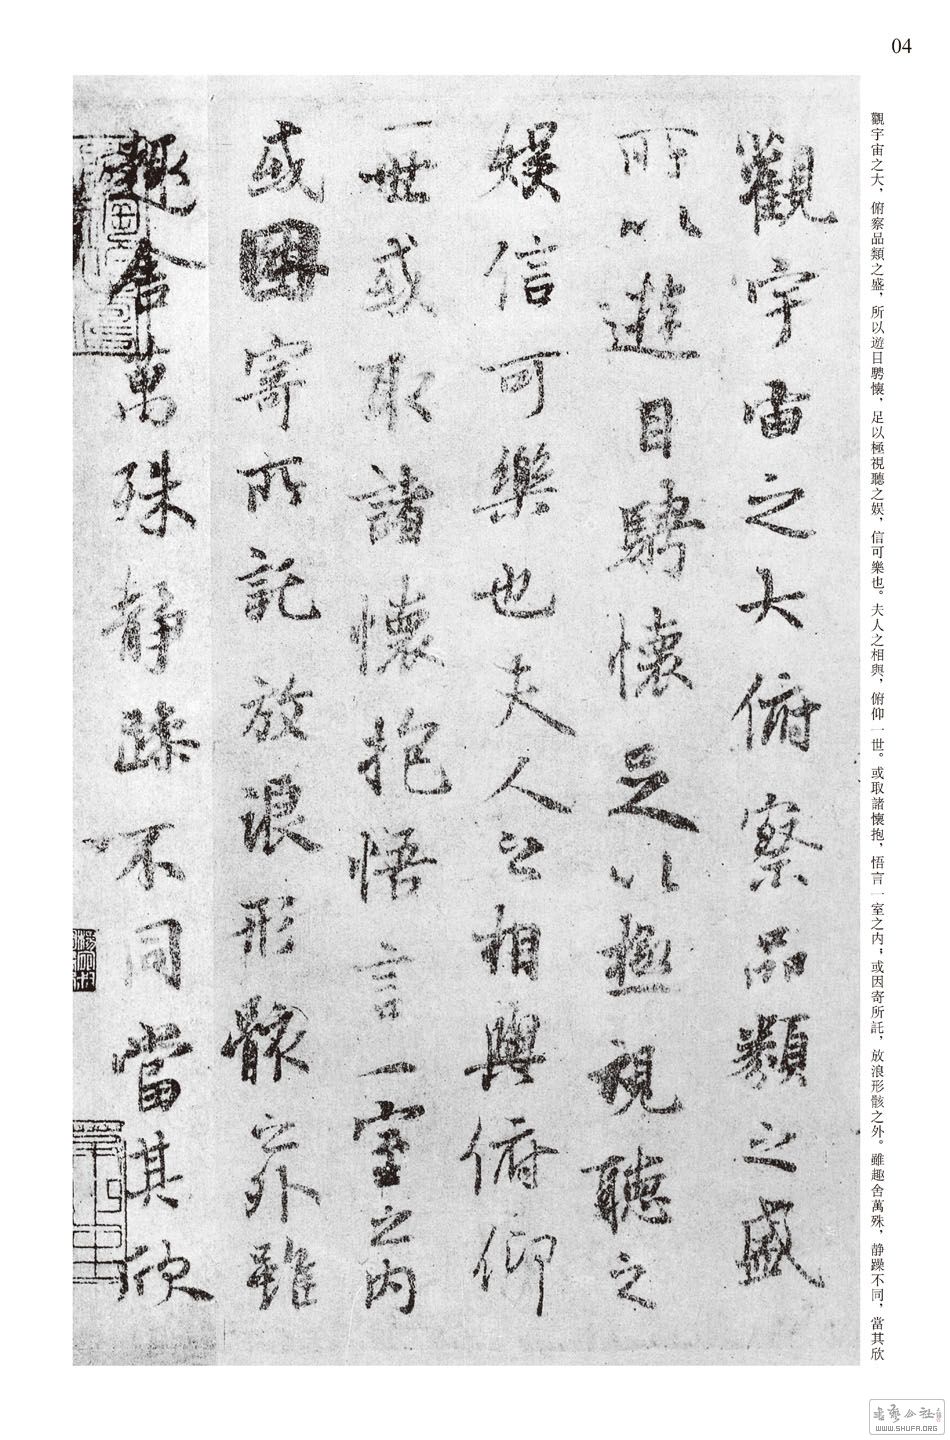 04
觀宇宙之大，俯察品類之盛，所以遊目騁懷，足以極視聽之娛，信可樂也。夫人之相與，俯仰一世。或取諸懷抱，悟言一室之内；或因寄所託，放浪形骸之外。雖趣舍萬殊，静躁不同，當其欣
觀宇宙之大俯察品類之盛
所以遊目騁懷足以極視聽之
娛信可樂也夫人之相與俯仰
一世或取諸懷抱悟言一室之内
或因寄所託放浪形骸之外雖
趣舍萬殊静躁不同當其欣
WWW.SHUFA.ORG